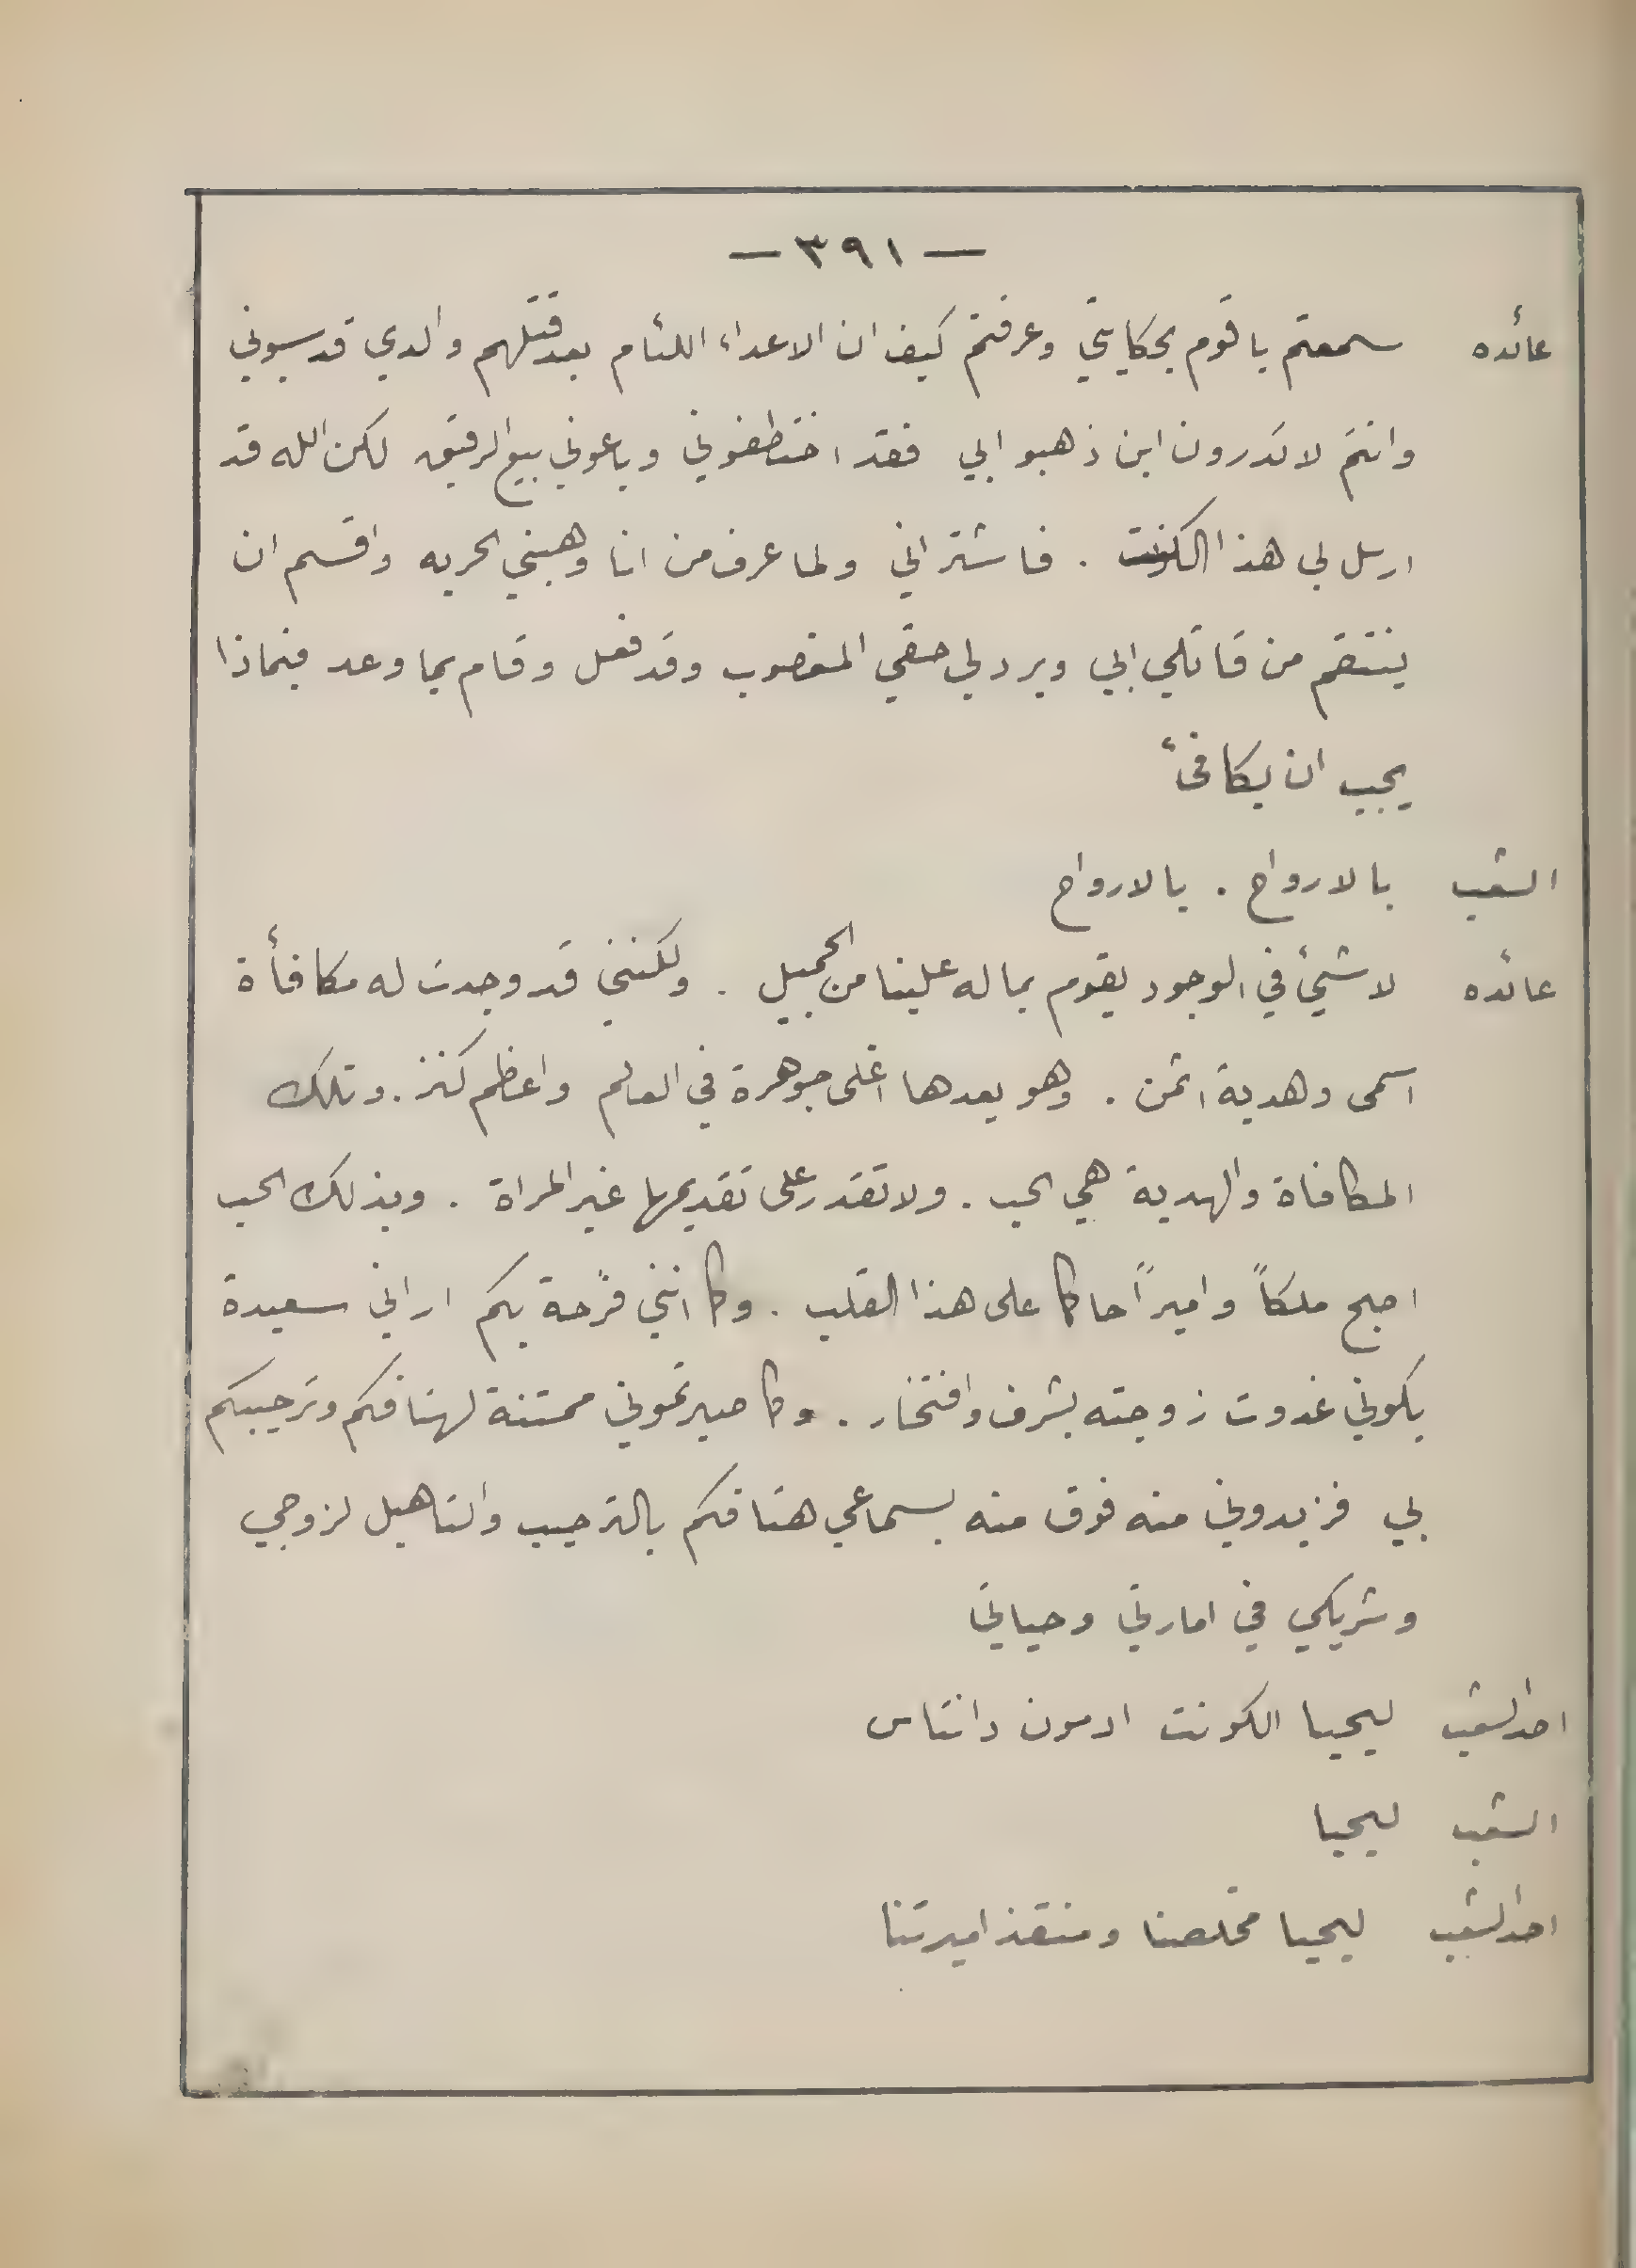 — ٣٩١ —
عائده سمعتم يا قوم بحكايتي وعرفتم كيف ان الاعداء اللئام بعد قتلهم والدي قد سبوني
وانتم لا تدرون اين ذهبو ابي فقد اختطفوني وباعوني بيع الرقيق لكن الله قد
ارسل لي هذا الكونت . فاشتراني ولما عرف من انا وهبني الحريه واقسم ان
ينتقم من قاتلي ابي ويرد لي حقي المغصوب وقد فعل وقام بما وعد فبماذا
يجب ان يكافئ
الشعب بالارواح . بالارواح
عائده لا شيئ في الوجود يقوم بما له علينا من الجميل . ولكنني قد وجدت له مكافأة
اسمى وهدية اثمن . وهو يعدها اغلى جوهرة في العالم واعظم كنز . وتلك
المكافاة والهدية هي الحب . ولا تقدر على تقديمها غير المراة . وبذلك الحب
اصبح ملكاً واميراً حاكما على هذا القلب . وكما انني فرحة بكم اراني سعيدة
بكوني غدوت زوجته بشرف وافتخار . وكما صيرتموني ممتنة لهتافكم وترحيبكم
بي فزيدوني منه فوق منه بسماعي هتافكم بالترحيب والتاهيل لزوجي
وشريكي في امارتي وحياتي
احد الشعب ليحيا الكونت ادمون دانتاس
الشعب ليحيا
احد الشعب ليحيا مخلصنا ومنقذ اميرتنا